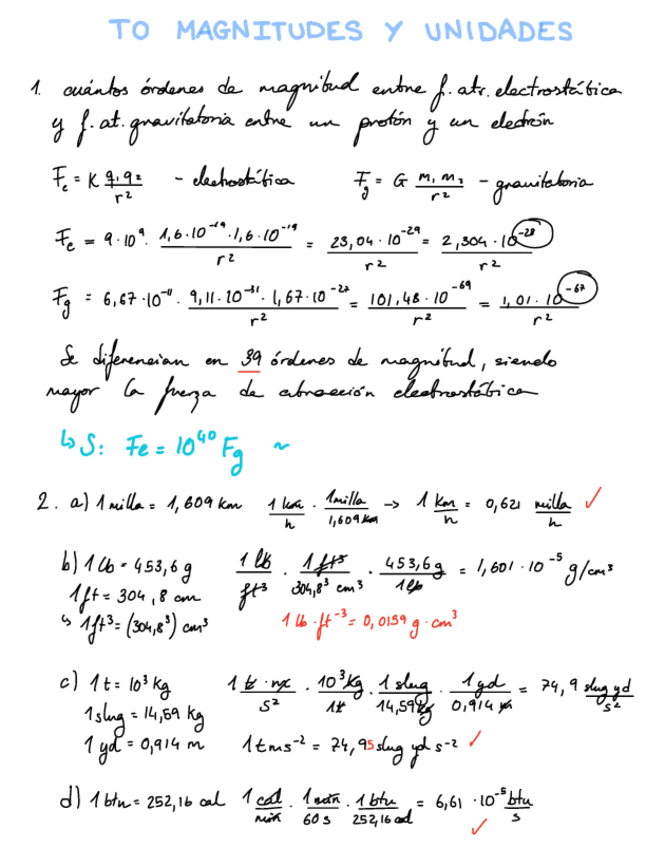 TO MAGNITUDES Y UNIDADES
1. cuántos órdenes de magnitud entre f. atr. electrostática
y f. at. gravitatoria entre un protón y un electrón
Fe = K q₁·q₂ / r² - electrostática Fg = G m₁ m₂ / r² - gravitatoria
Fe = 9·10⁹ · 1,6·10⁻¹⁹·1,6·10⁻¹⁹ / r² = 23,04·10⁻²⁹ / r² = 2,304·10⁻²⁸ / r²
Fg = 6,67·10⁻¹¹ · 9,11·10⁻³¹·1,67·10⁻²⁷ / r² = 101,48·10⁻⁶⁹ / r² = 1,01·10⁻⁶⁷ / r²
Se diferencian en 39 órdenes de magnitud, siendo
mayor la fuerza de atracción electrostática
↳ S: Fe = 10⁴⁰ Fg ~
2. a) 1 milla = 1,609 km 1 km / h · 1 milla / 1,609 km → 1 km / h = 0,621 milla / h ✓
b) 1 lb = 453,6 g 1 lb / ft³ · 1 ft³ / 304,8³ cm³ · 453,6 g / 1 lb = 1,601·10⁻⁵ g/cm³
1 ft = 304,8 cm
↳ 1 ft³ = (304,8³) cm³ 1 lb·ft⁻³ = 0,0159 g·cm³
c) 1 t = 10³ kg 1 t·m / s² · 10³ kg / 1 t · 1 slug / 14,59 kg · 1 yd / 0,914 m = 74,9 slug yd / s²
1 slug = 14,59 kg
1 yd = 0,914 m 1 t m s⁻² = 74,95 slug yd s⁻² ✓
d) 1 btu = 252,16 cal 1 cal / min · 1 min / 60 s · 1 btu / 252,16 cal = 6,61·10⁻⁵ btu / s ✓